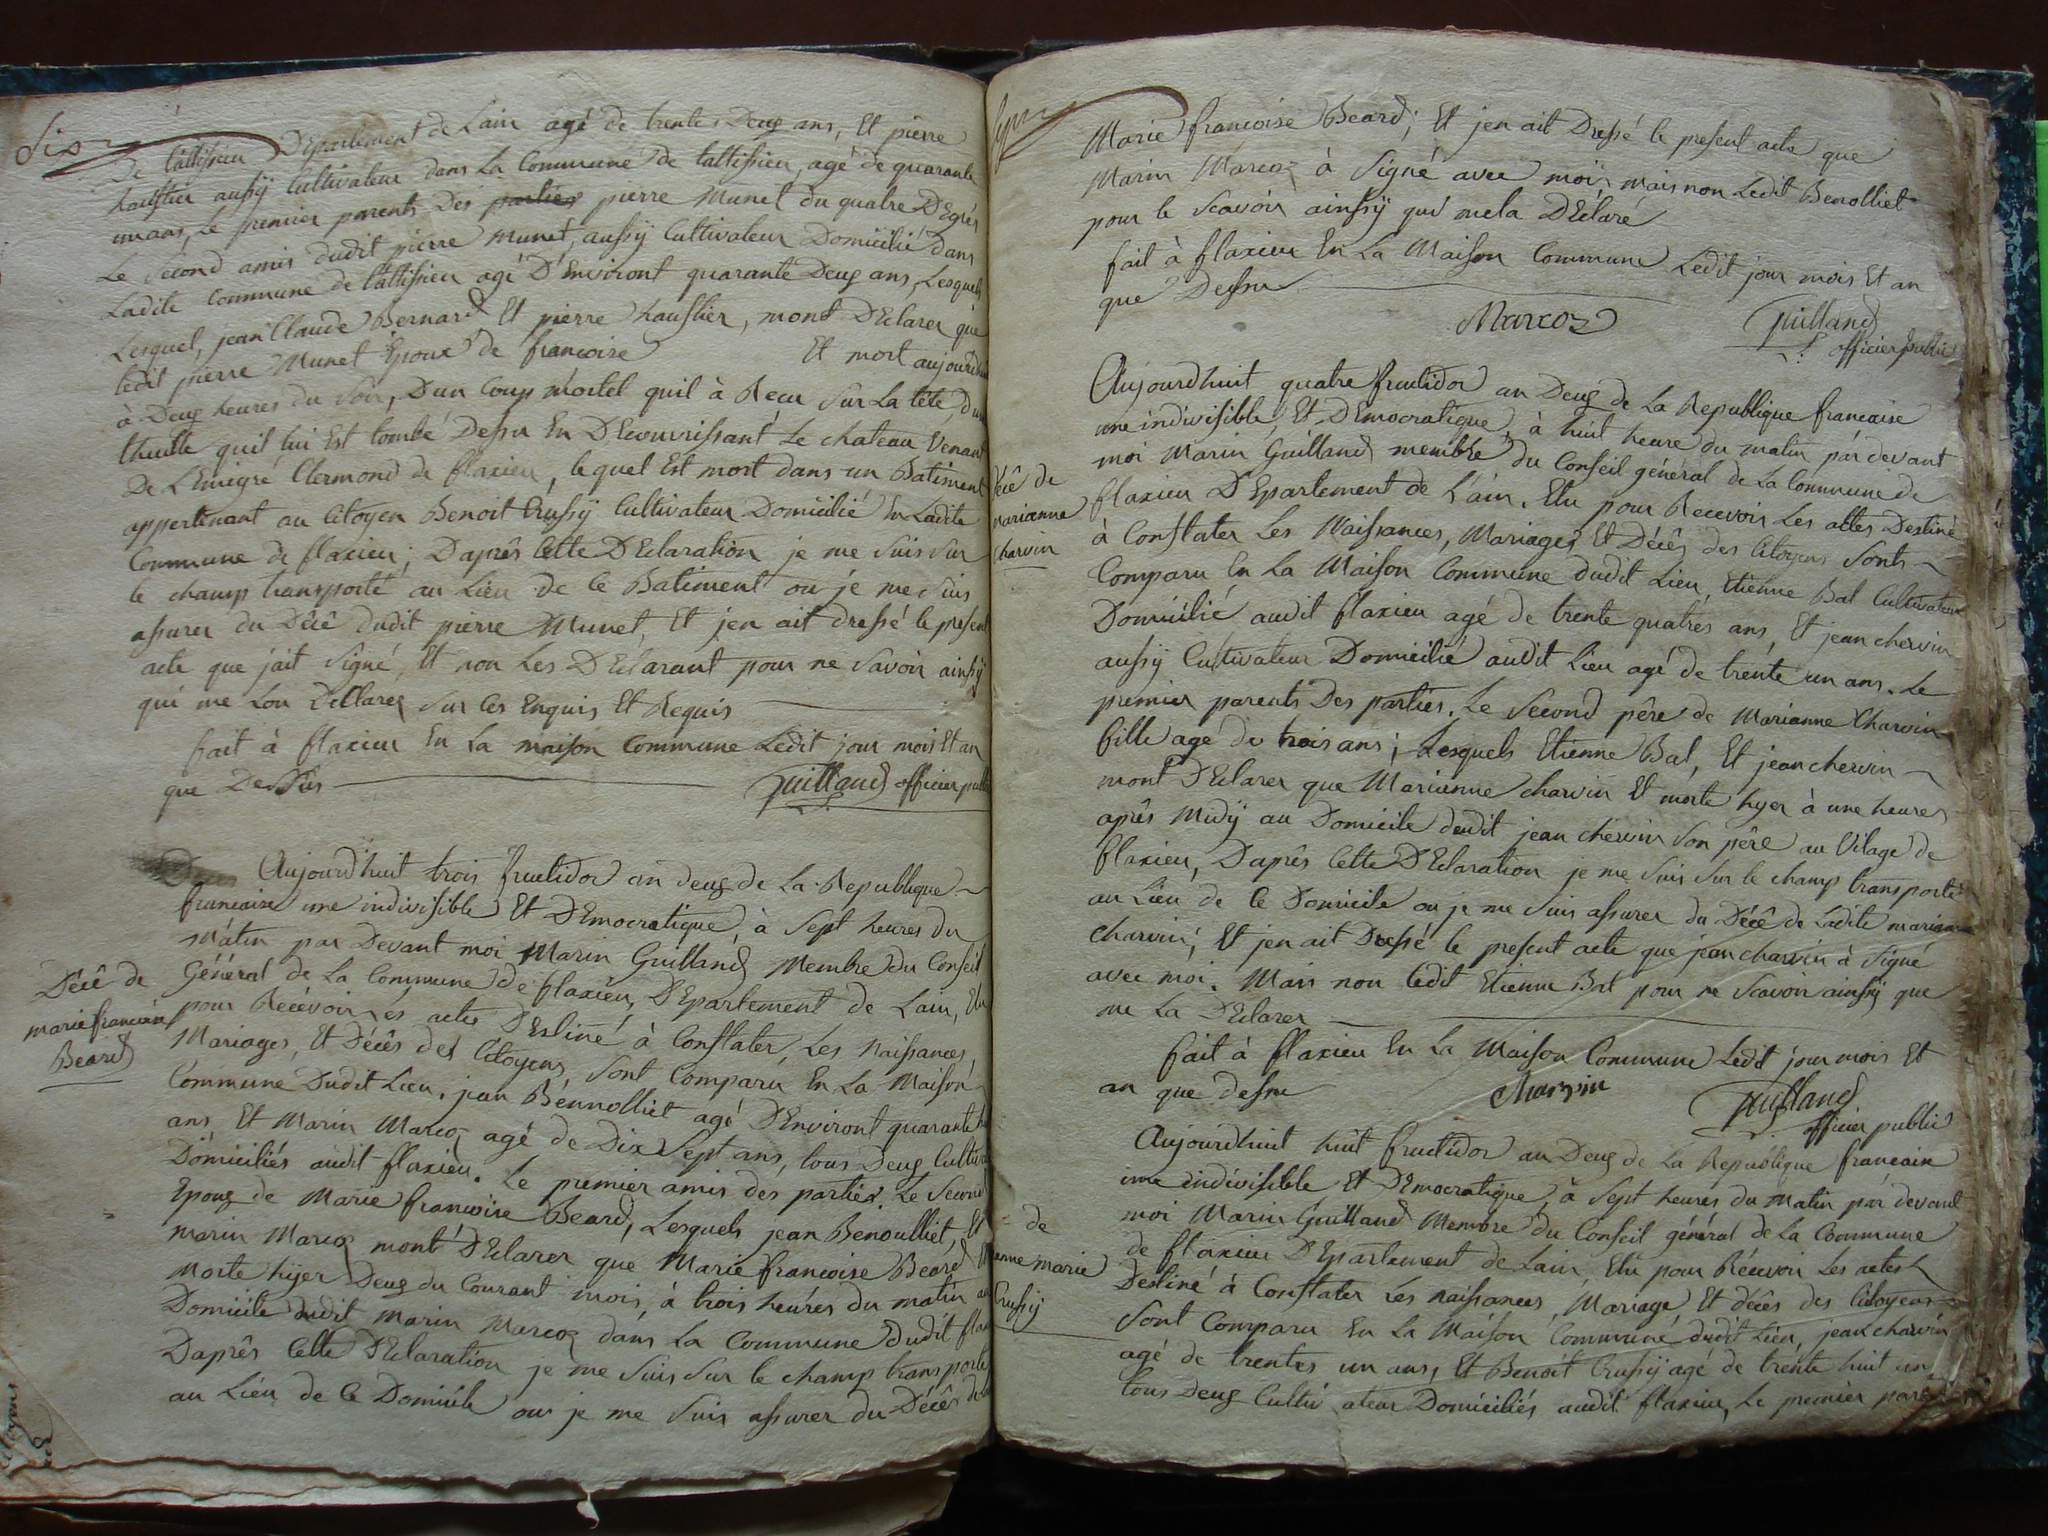 Six
De tattissieu Département de Lain agé de trente Deug ans, Et pierre
haustier aussÿ Cultivateur dans La Commune de tattissieu, agé de quarante
un ans, Le premier parents Des parties pierre Munet du quatre Degrés
Le Second amis dudit pierre Munet, aussÿ Cultivateur Domicilié dans
Ladite Commune de tattissieu agé D'Environt quarante Deug ans, Lesquels
Lesquel, jean Claude Bernard Et pierre haustier, mont DEclarer que
ledit pierre Munet Epoux de francoise Et mort aujourdhui
à Deug heures du Soir, Dun Coup mortel quil à Recu Sur La tête, dun
thuille quil lui Est tombé Dessu En DEcouvrissant Le chateau Venant
De LEmigré Clermond de flaxieu, lequel Est mort dans un Batiment
appertenant au Citoyen Benoit Crussÿ Cultivateur Domicilié En Ladite
Commune de flaxieu; Daprês Cette DEclaration je me Suis Sur
le champ transporté au Lieu de Ce Batiment ou je me suis
assurer du Décê dudit pierre Munet, Et jen ait dressé le present
acte que jait Signé, Et non Les DEclarant pour ne Savoir ainsÿ
qui me Lon Déllarez Sur Ces Enquis Et Requis
fait à flaxieu En La maison Commune Ledit jour mois Et an
que Dessus
Guilland officier public
Aujourd'huit trois fructidor an deug de La Republique
francaise une indivisible Et DEmocratique, à Sept heures du
Matin par Devant moi Marin Guilland Membre du Conseil
Général de La Commune de flaxieu, DEpartement de Lain, Elu
Décê de
marie francoise
Beard
pour Recevoir les actes DEstiné à Constater, Les Naissances,
Mariages, Et Décês des Citoyens, Sont Comparu En La Maison
Commune Dudit Lieu, jean Bennolliet agé DEnviront quarante
ans Et Marin Marcoz agé de Dix Sept ans, tous Deug Cultiva
Domiciliés audit flaxieu. Le premier amis des parties Le Second
Epoug de Marie francoise Beard, Lesquels jean Benoulliet, Et
marin Marcoz mont DEclarer que Marie francoise Beard Et
Morte hyer Deug du Courant mois, à trois heures du matin au
Domicile dudit Marin Marcoz dans La Commune Dudit fla
Daprês Cette DEclaration je me Suis Sur le champ transporté
au Lieu de Ce Domicile ou je me Suis assurer du Décês de
Marie francoise Beard; Et jen ait Dressé le present acte que
Marin Marcoz à Signé avec moi mais non Ledit Benolliet
pour le Scavoir ainsÿ qui mela DEclaré
fait à flaxieu En La Maison Commune Ledit jour mois Et an
que Dessu
Marcoz
Guilland
officier public
Aujourdhuit quatre fructidor an Deug de La Republique francaise
une indivisible, Et DEmocratique, à huit heure du matin par devant
moi Marin Guilland membre du Conseil général de La Commune de
Décê de
marianne
Charvin
flaxieu DEpartement de L'ain. Elu pour Recevoir Les actes Destiné
à Constater Les Naissances, Mariages Et Décês des Citoyens Sonts
Comparu En La Maison Commune dudit Lieu, Etienne Bal Cultivateur
Domicilié audit flaxieu agé de trente quatres ans, Et jean chervin
aussÿ Cultivateur Domicilié audit Lieu agé de trente un ans. Le
premier parents Des parties. Le Second pêre de Marianne Charvin
fille agé de trois ans; Lesquels Etienne Bal, Et jean chervin
mont DEclarer que Marianne charvin Et morte hyer à une heures
aprês Midÿ au Domicile dudit jean chervin Son pêre au Vilage de
flaxieu, Daprês Cette DEclaration je me Suis Sur le champ transporté
au Lieu de Ce Domicile ou je me Suis assurer du Décê de Ladite marianne
Charvin; Et jen ait Dressé le present acte que jean charvin à Signé
avec moi. Mais non Ledit Etienne Bal pour ne Scavoir ainsÿ que
me La DEclarer
fait à flaxieu En La Maison Commune Ledit jour mois Et
an que dessu
Guilland
officier public
Aujourdhuit huit fructidor an Deug de La Republique francaise
une indivisible Et DEmocratique, à Sept heures du Matin par devant
moi Marin Guilland Membre du Conseil général de La Commune
de
anne marie
Crussÿ
de flaxieu DEpartement de Lain, Elu pour Récevoir Les actes
Destiné à Constater Les naissances, Mariage, Et décês des Citoyens
Sont Comparu En La Maison Commune dudit Lieu, jean charvin
agé de trentes un ans, Et Benoit Crussÿ agé de trente huit an
tous Deug Cultivateur Domiciliés audit flaxieu, Le premier parent